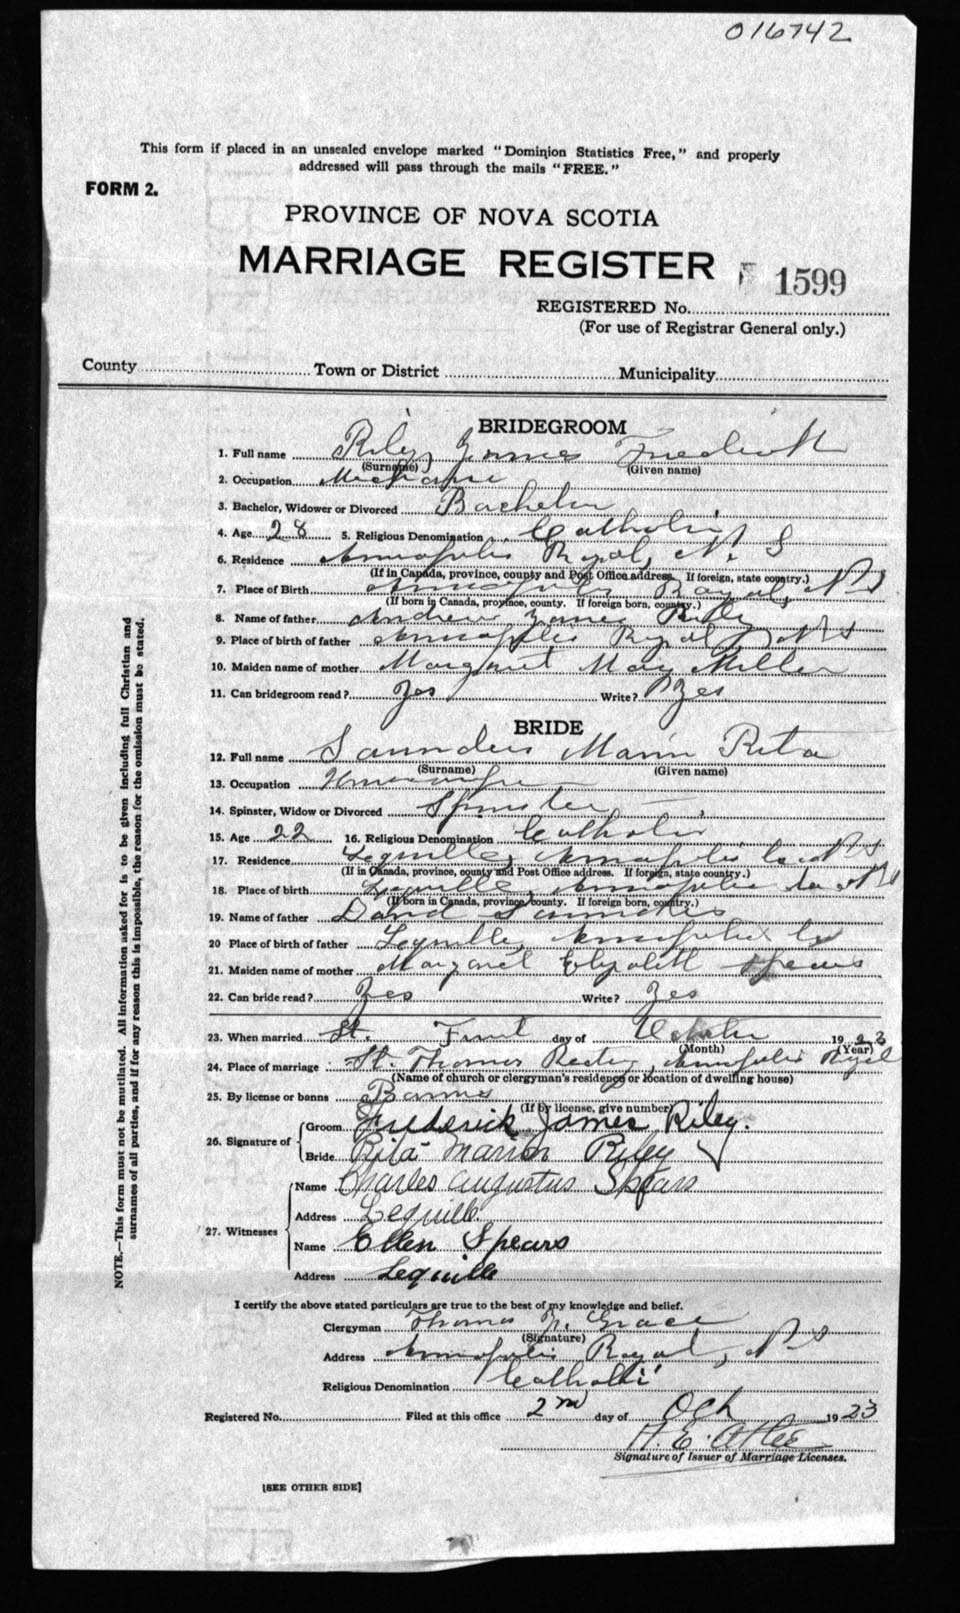 016742
This form if placed in an unsealed envelope marked "Dominion Statistics Free," and properly
addressed will pass through the mails "FREE."
FORM 2.
PROVINCE OF NOVA SCOTIA
MARRIAGE REGISTER
1599
REGISTERED No.
(For use of Registrar General only.)
County Town or District Municipality
BRIDEGROOM
1. Full name Riley James Fredrick
(Surname) (Given name)
2. Occupation Mechanic
3. Bachelor, Widower or Divorced Bachelor
4. Age 28 5. Religious Denomination Catholic
6. Residence Annapolis Royal, N. S
(If in Canada, province, county and Post Office address. If foreign, state country.)
7. Place of Birth Annapolis Royal, N S
(If born in Canada, province, county. If foreign born, country.)
8. Name of father Andrew James Riley
9. Place of birth of father Annapolis Royal N S
10. Maiden name of mother Margaret May Miller
11. Can bridegroom read? Yes Write? Yes
BRIDE
12. Full name Saunders Marion Rita
(Surname) (Given name)
13. Occupation
14. Spinster, Widow or Divorced Spinster
15. Age 22 16. Religious Denomination Catholic
17. Residence Lequille, Annapolis Co N S
(If in Canada, province, county and Post Office address. If foreign, state country.)
18. Place of birth Lequille, Annapolis Co N S
(If born in Canada, province, county. If foreign born, country.)
19. Name of father David Saunders
20 Place of birth of father Lequille, Annapolis Co
21. Maiden name of mother Margaret Elizabeth Spears
22. Can bride read? Yes Write? Yes
23. When married First day of October 1923
(Month) (Year)
24. Place of marriage St. Thomas Rectory, Annapolis Royal
(Name of church or clergyman's residence or location of dwelling house)
25. By license or banns Banns
(If by license, give number)
26. Signature of Groom Frederick James Riley.
Bride Rita Marion Riley
27. Witnesses Name Charles Augustus Spears
Address Lequille
Name Ellen Spears
Address Lequille
I certify the above stated particulars are true to the best of my knowledge and belief.
Clergyman Thomas Grace
(Signature)
Address Annapolis Royal, N S
Religious Denomination Catholic
Registered No. Filed at this office 2nd day of Oct 1923
H. E. Atlee
Signature of Issuer of Marriage Licenses.
[SEE OTHER SIDE]
NOTE.—This form must not be mutilated. All information asked for is to be given including full Christian and
surnames of all parties, and if for any reason this is impossible, the reason for the omission must be stated.